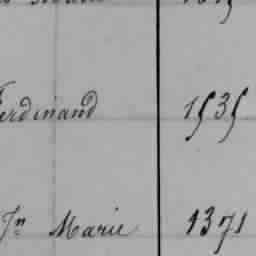 Ferdinand 1535
Jn Marie 1371